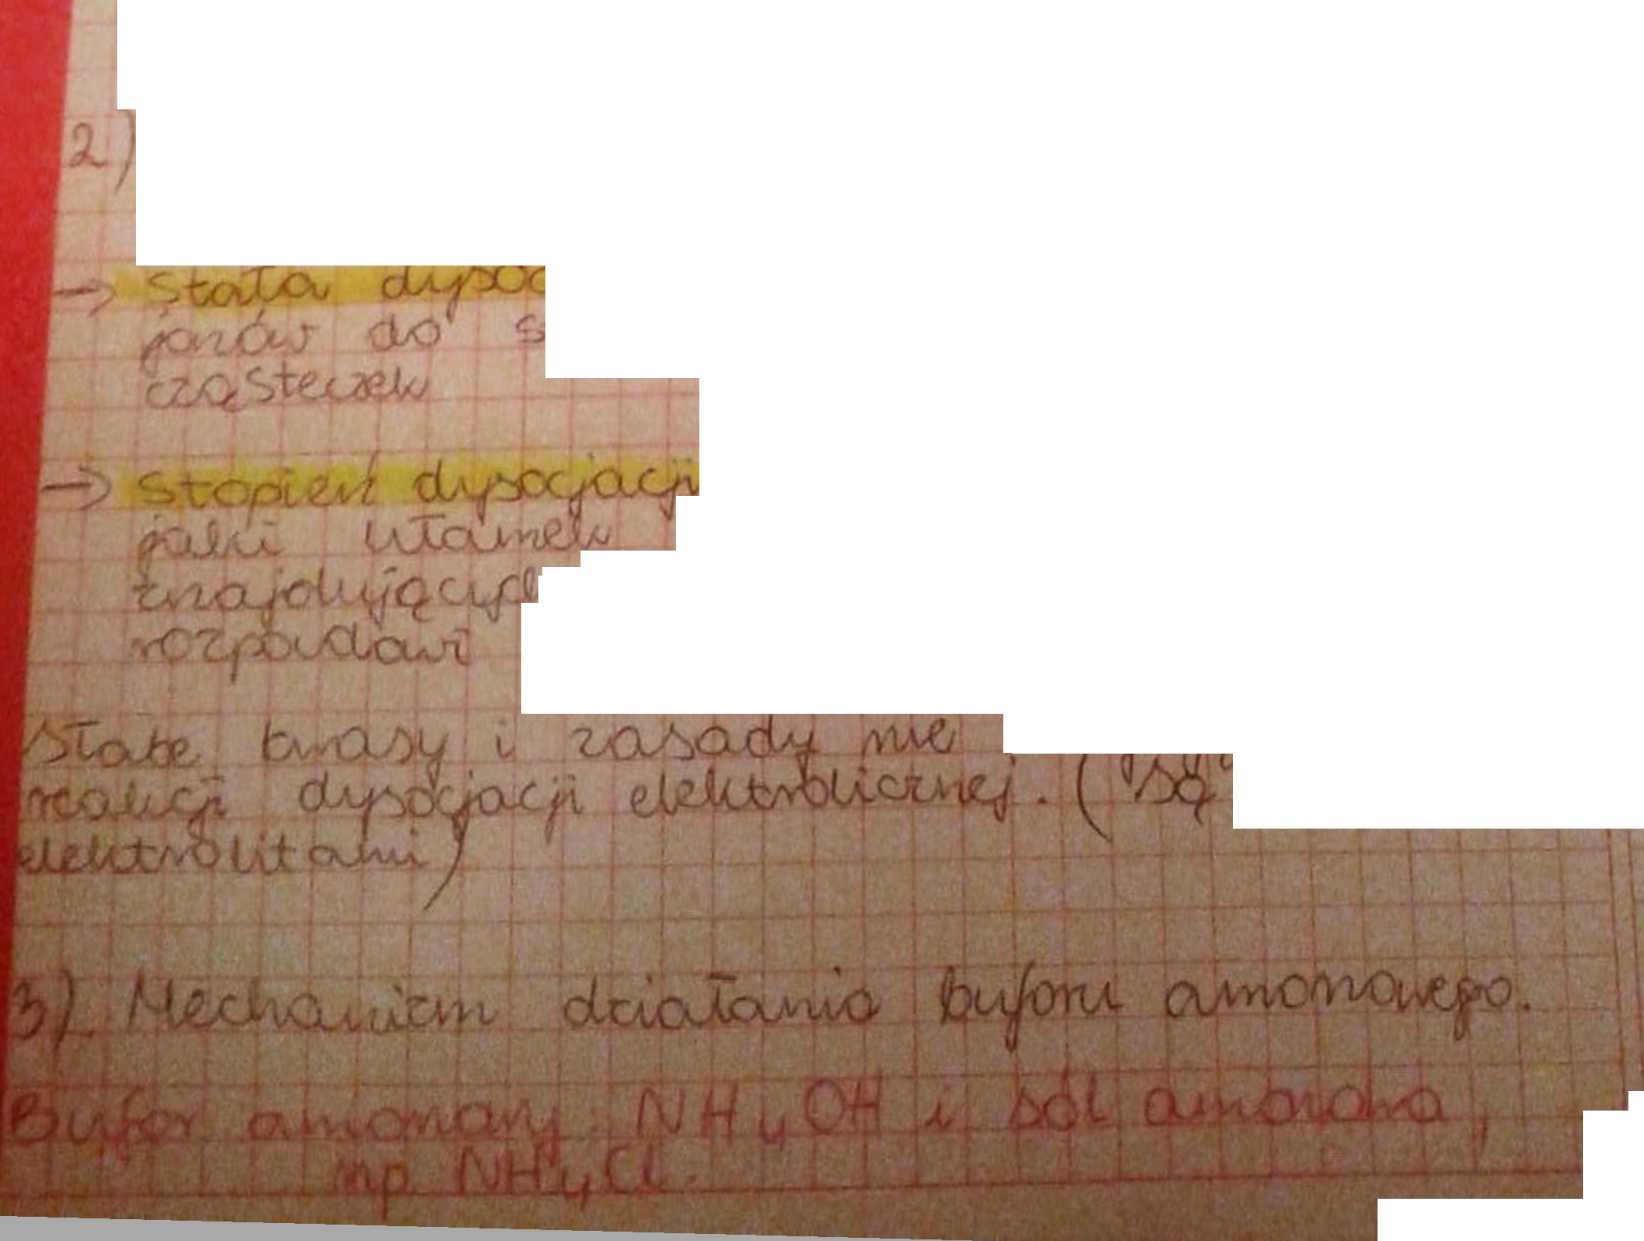 2)
→ stała dysoc
jonów do s
cząsteczek
→ stopień dysocjacji
jaki ułamek
znajdujących
rozpadowi
Słabe kwasy i zasady nie
reakcji dysocjacji elektrolicznej. ( są
elektrolitami)
3) Mechanizm działania buforu amonowego.
Bufor amonowy NH4OH i sól amonowa,
np. NH4Cl.